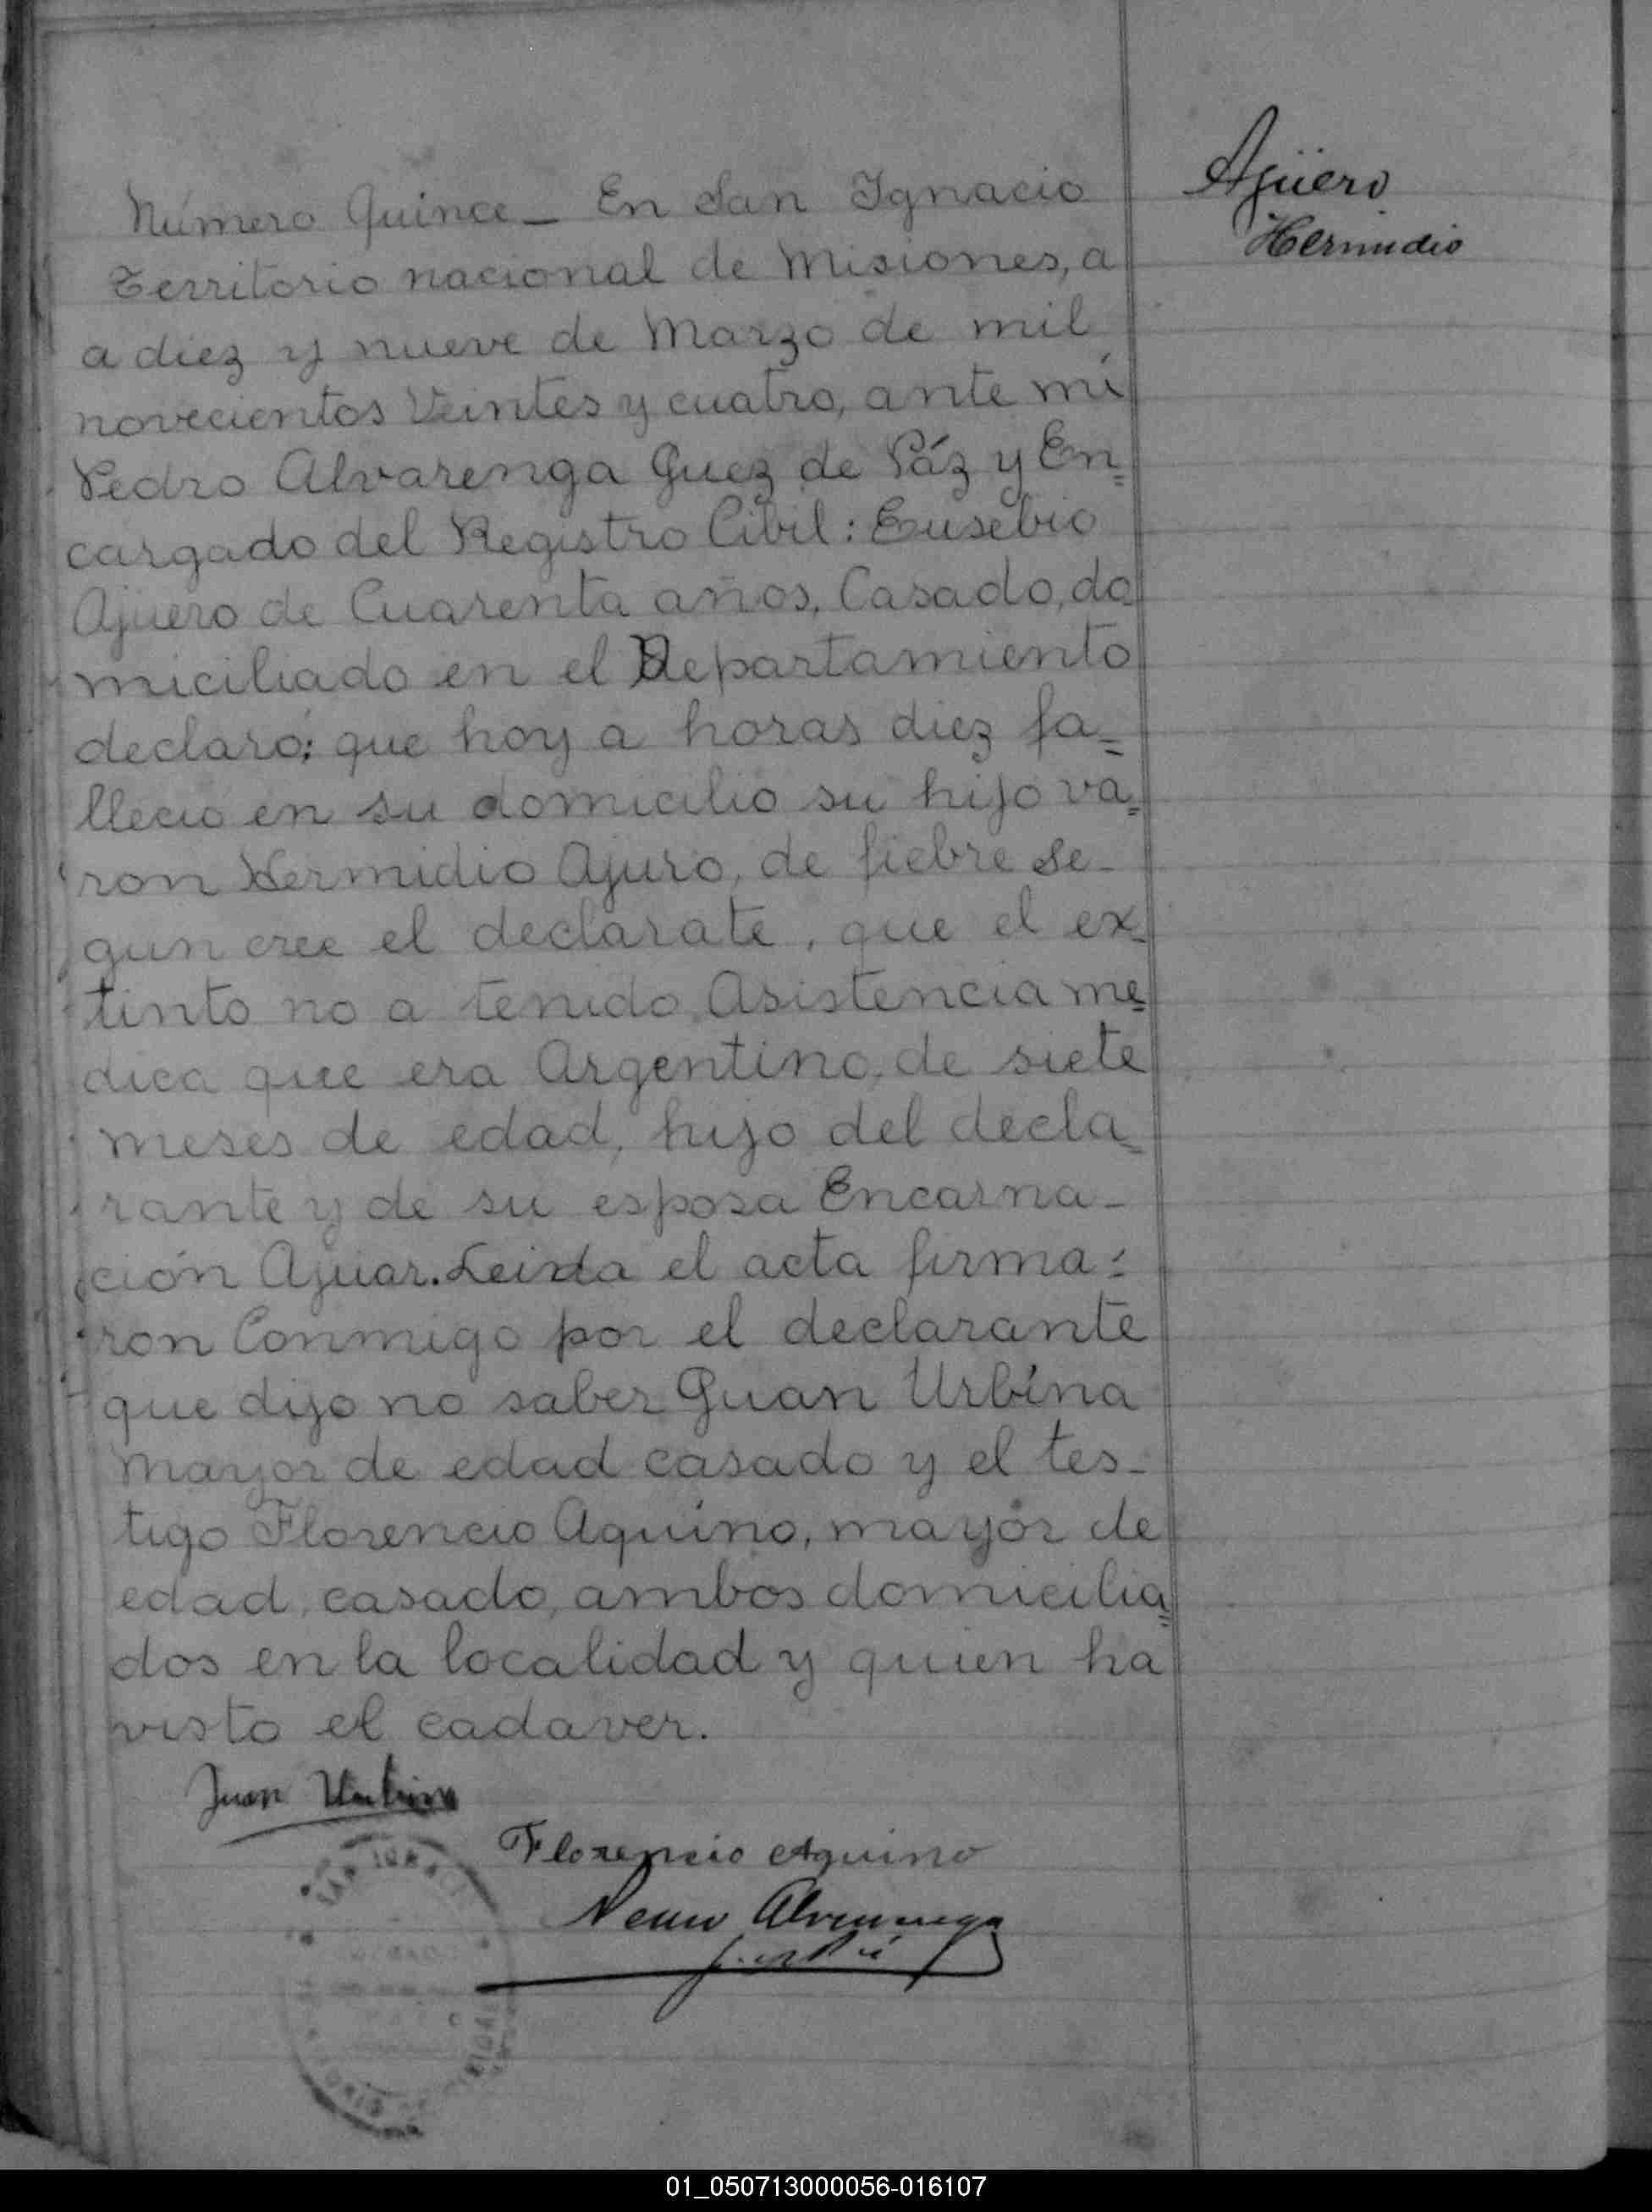 Agüero
Hermidio
Número Quince_ En San Ignacio
Territorio nacional de Misiones, a
a diez y nueve de Marzo de mil
novecientos Veintes y cuatro, ante mí
Pedro Alvarenga Guez de Páz y En=
cargado del Registro Cibil: Eusebio
Ajuero de Cuarenta años, Casado, do
miciliado en el Departamiento
declaró: que hoy a horas diez fa=
llecio en su domicilio su hijo va=
ron Hermidio Ajuro, de fiebre se-
gun cree el declarate, que el ex-
tinto no a tenido Asistencia me=
dica que era Argentino, de siete
meses de edad, hijo del decla=
rante y de su esposa Encarna-
ción Ajuar. Leida el acta firma=
ron Conmigo por el declarante
que dijo no saber Guan Urbina
mayor de edad casado y el tes-
tigo Florencio Aquino, mayor de
edad, casado, ambos domicilia=
dos en la localidad y quien ha
visto el cadaver.
Juan Urbina
Florencio Aquino
Pedro Alvarenga
SAN IGNACIO
01_050713000056-016107